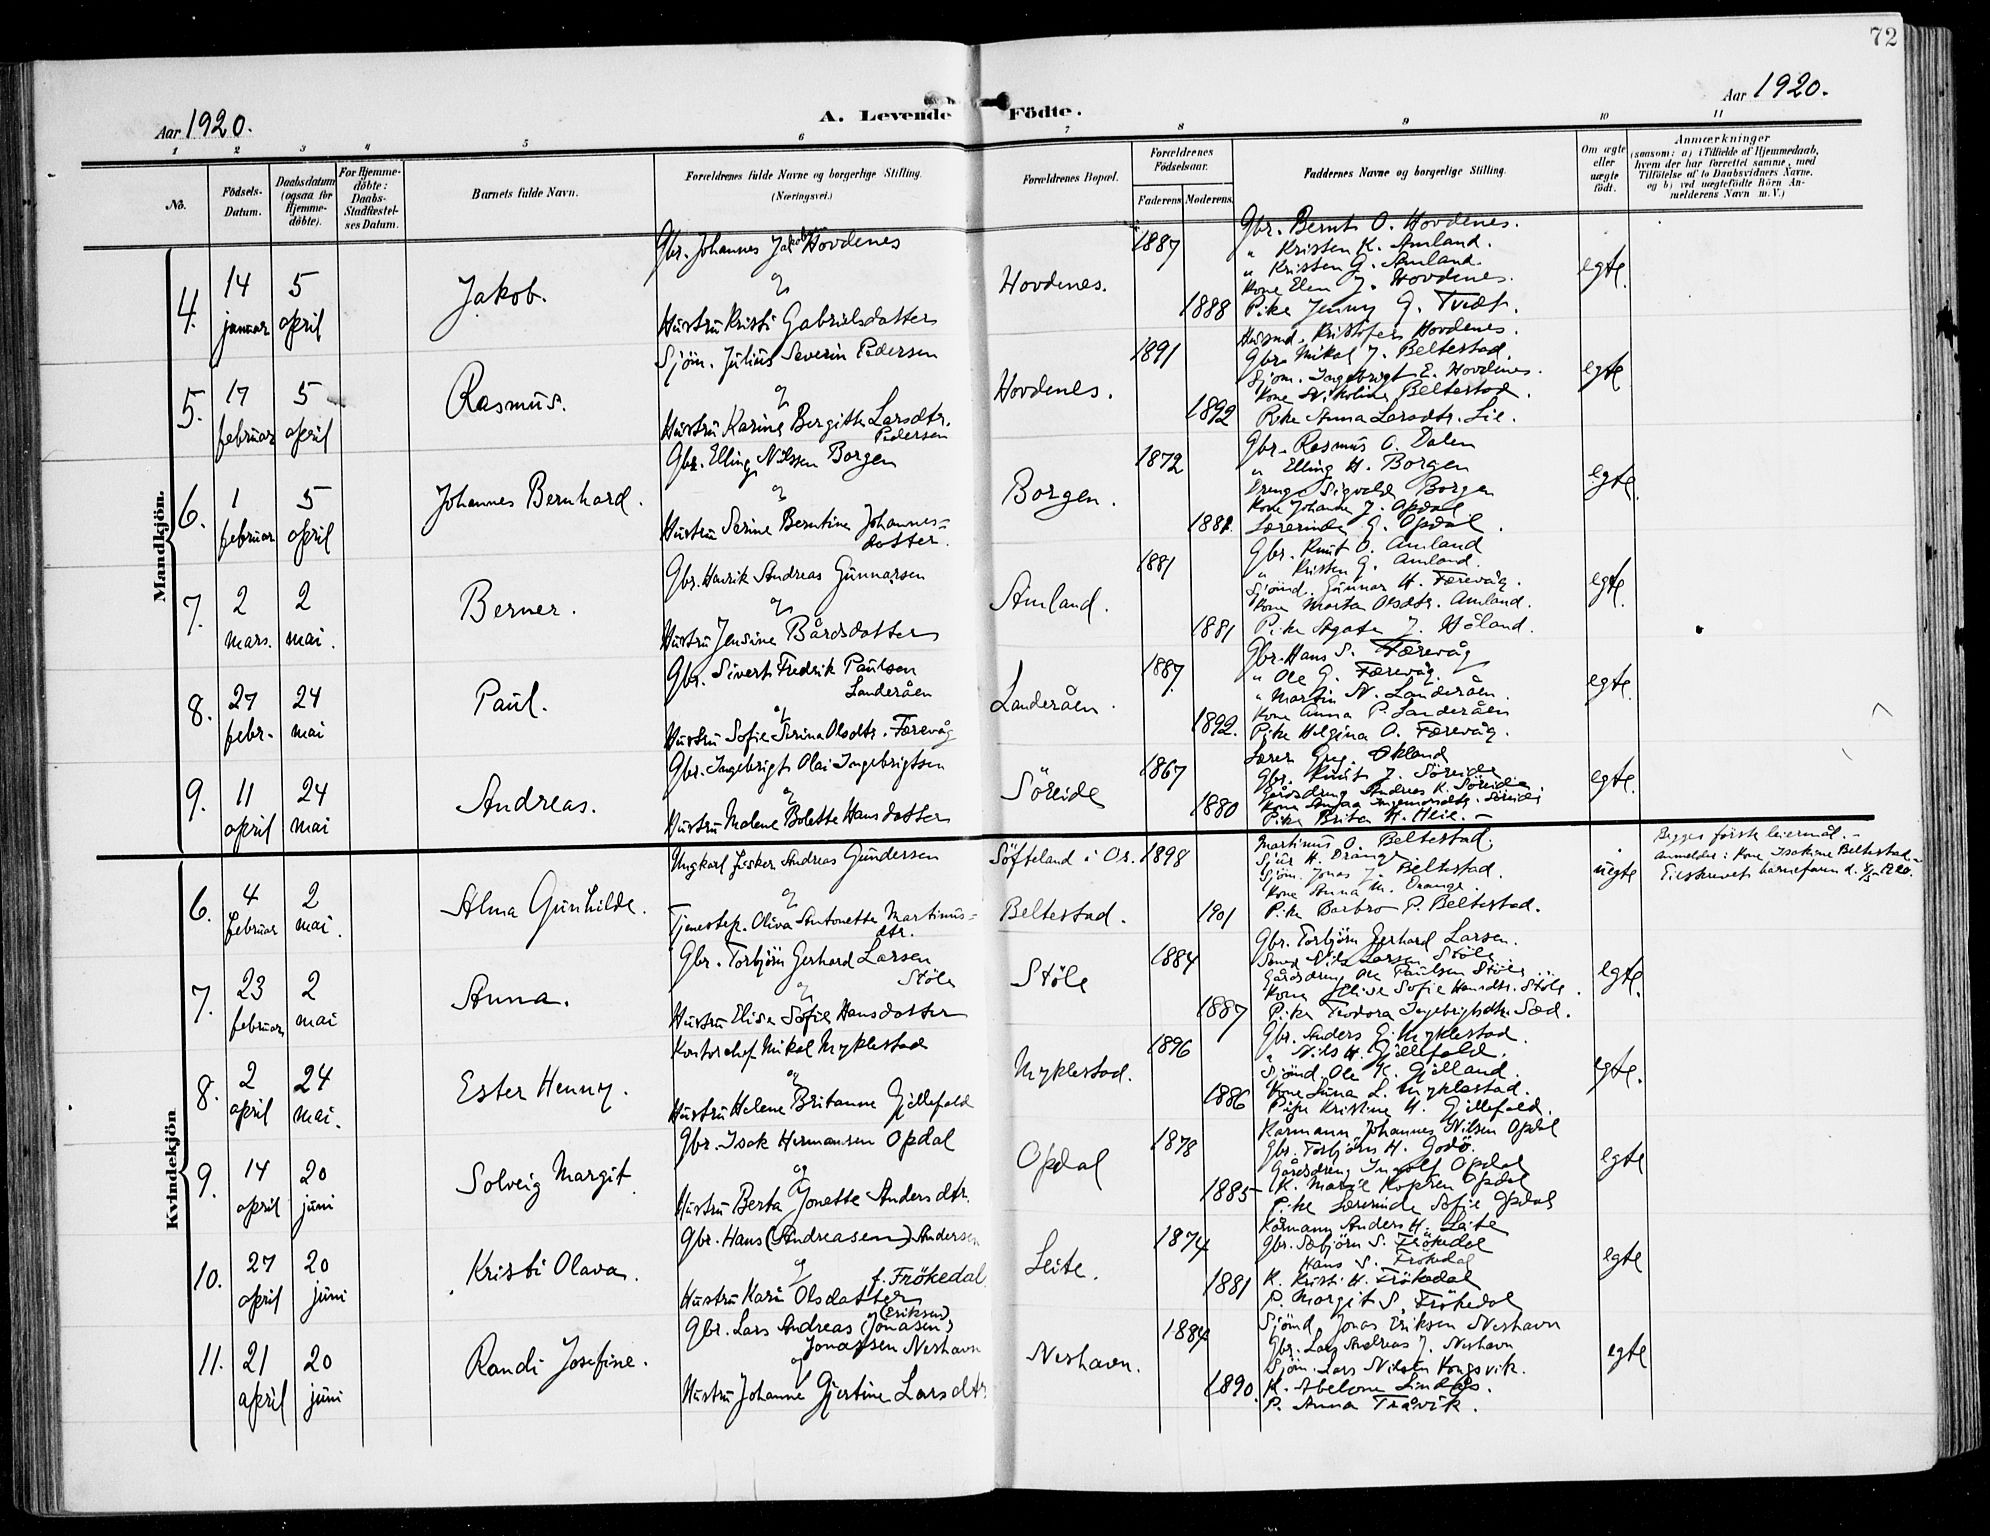 72
Aar 1920.
A. Levende Födte.
Aar 1920.
1 2 3 4 5 6 7 8 9 10 11
No.
Födsels-Datum.
Daabsdatum (ogsaa for Hjemme-döbte).
For Hjemme-döbte: Daabs-Stadfæstel-ses Datum.
Barnets fulde Navn.
Forældrenes fulde Navne og borgerlige Stilling.
(Næringsvei.)
Forældrenes Bopæl.
Forældrenes Födselsaar.
Faderens. Moderens.
Faddernes Navne og borgerlige Stilling.
Om ægte eller uægte födt.
Anmærkninger
(saasom: a) i Tilfælde af Hjemmedaab,
hvem der har forrettet samme, med
Tilföielse af to Daabsvidners Navne.
og b) ved uægtefödte Börn An-
melderens Navn m. V.)
Mandkjön.
4. 14 januar 5 april
Jakob.
Gbr. Johannes Jakobs Hovdenes
og
Hustru Kristi Gabrielsdatter
Hovdenes.
1887
1888
Gbr. Bernt O. Hovdenes.
" Kristen K. Amland.
" Kristen G. Amland.
Kone Elen J. Hovdenes.
Pike Jenny G. Tvedt.
egte.
5. 17 februar 5 april
Rasmus.
Sjöm. Julius Severin Pedersen
og
Hustru Karina Bergitta Larsdtr. Pedersen
Hovdenes.
1891
1892
Husmd. Kristofer Hovdenes.
Gbr. Mikal J. Beltestad.
Sjöm. Ingebrigt E. Hovdenes.
Kone Nikolina Beltestad.
Pike Anna Larsdtr. Lie.
egte
6. 1 februar 5 april
Johannes Bernhard.
Gbr. Elling Nilssen Borgen
og
Hustru Serine Berntine Johannes-
datter.
Borgen.
1872
1881
Gbr. Rasmus O. Dalen
" Elling H. Borgen
Dreng Sigvald Borgen
Kone Johanna J. Opdal
Lærerinde G. Opdal.
egte.
7. 2 mars. 2 mai.
Berner.
Gbr. Henrik Andreas Gunnarsen
og
Hustru Jensine Bårdsdatter
Amland.
1881
1881
Gbr. Knut O. Amland
" Kristen G. Amland.
Sjömd. Gunnar H. Færevåg.
Kone Marta Olsdtr. Amland.
Pike Agata J. Håland.
egte.
8. 27 febr. 24 mai
Paul.
Gbr. Sivert Fredrik Paulsen
Landeråen
og
Hustru Sofie Serina Olsdtr. Færevåg
Landeråen.
1887.
1892.
Gbr. Hans S. Færevåg
" Ole G. Færevåg.
" Martin N. Landeråen.
Kone Anna P. Landeråen
Pike Helgina O. Færevåg.
egte.
9. 11 april 24 mai
Andreas.
Gbr. Ingebrigt Olai Ingebrigtsen
og
Hustru Malene Bolette Hansdatter
Söreide
1867
1880
Lærer Greg. Økland
Gbr. Knut J. Söreide
Gårdsdreng Andreas K. Söreide
Pike Brita H. Heie.
egte.
Kvindekjön
6. 4 februar 2 mai.
Alma Gunhilde.
Ungkarl Jesker Andreas Gundersen
og
Tjenestep. Oliva Antonette Martinus-
dtr.
Söfteland i Os.
Beltestad.
1898
1901
Martinus O. Beltestad.
Sjur H. Drange
Sjöm. Jonas J. Beltestad.
Kone Anna M. Drange.
Pike Barbro P. Beltestad.
uegte
Begges förste leiermål.
Anmelder: Kone Isakine Beltestad
7. 23 februar 2 mai
Anna.
Gbr. Torbjörn Gerhard Larsen
Stöle
og
Hustru Elisa Sofie Hansdatter
Stöle
1884
1887
Gbr. Torbjörn Gerhard Larsen.
Nils Larsen Stöle
Gårdsdreng Ole Paulsen Stöle
Kone Elisa Sofie Hansdtr. Stöle.
Pike Teodora Ingebrigtsdtr. Sæd.
egte.
8. 2 april 24 mai.
Ester Henny.
Kontorchef Mikal Myklestad
og
Hustru Helene Britanne Gjellefald
Myklestad.
1896
1886
Gbr. Anders E. Myklestad.
" Nils H. Gjellefald.
Sjömd. Ole K. Gjelland.
Kone Luna L. Myklestad.
Pike Kristine H. Gjellefald.
egte.
9. 14 april 20 juni
Solveig Margit
Gbr. Isak Hermansen Opdal
og
Hustru Berta Jonette Andersdtr.
Opdal
1878
1885
Kårmann Johannes Nilsen Opdal
Gbr. Torbjörn H. Godö.
Gårdsdreng Ingolf Opdal
K. Marie Kopren Opdal
Pike Lærerinde Sofie Opdal
egte
10. 27 april 20 juni
Kristi Olava.
Gbr. Hans (Andreasen) Andersen
og f. Frökedal
Hustru Kari Olsdatter
Leite.
1874
1881
Kårmann Anders H. Leite
Gbr. Sæbjörn S. Frökedal
Hans S. Frökedal
K. Kristi H. Frökedal
P. Margit S. Frökedal
egte
11. 21 april 20 juni
Randi Josefine.
(Eriksen)
Gbr. Lars Andreas (Jonasen)
Jonassen Neshavn
og
Hustru Johanne Gjertine Larsdtr
Neshavn.
1884
1890.
Sjömd. Jonas Eriksen Neshavn
Gbr. Lars Andreas J. Neshavn
Sjöm. Lars Nilsen Vongsvik.
K. Abelone Lindås.
P. Anna Tråvik.
egte